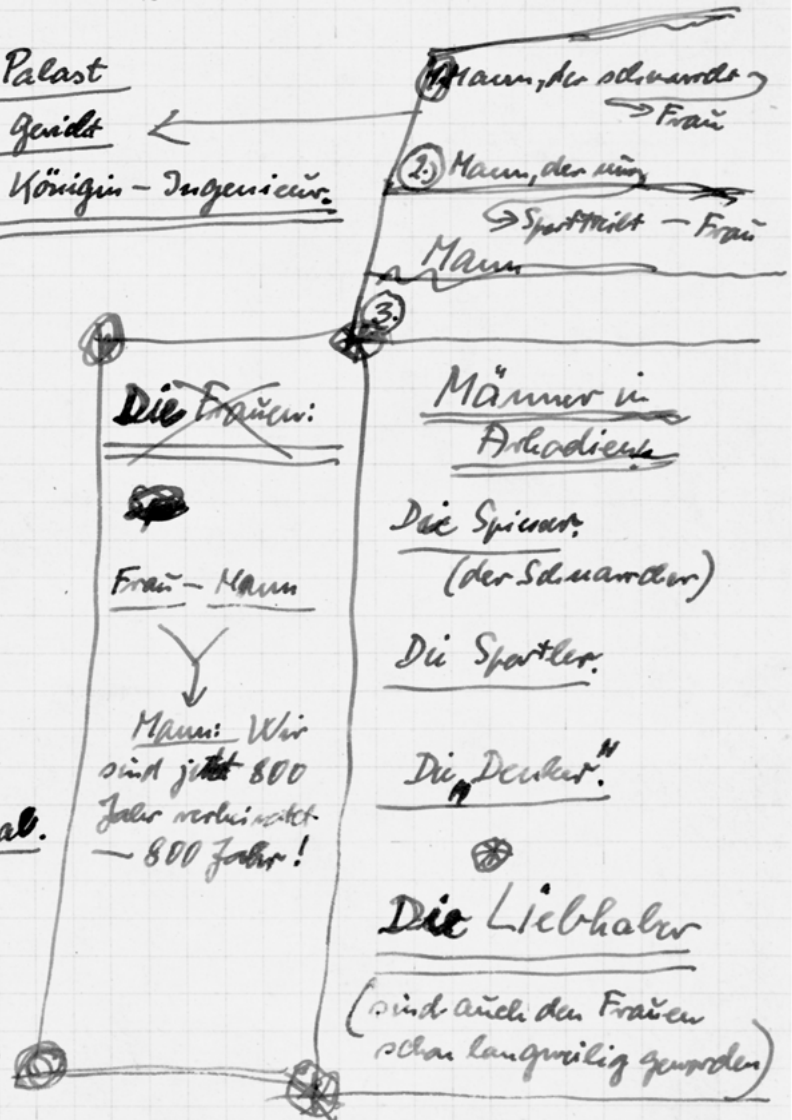 Palast
Gericht
Königin – Ingenieur.
1. Mann, der schnarcht
→ Frau
2.) Mann, der nur
→ Sport treibt – Frau
Mann
3.
Die Frauen:
Frau – Mann
Mann: Wir
sind jetzt 800
Jahr verheiratet
– 800 Jahr!
Männer in
Arkadien
Die Spieler.
(der Schnarcher)
Die Sportler.
Die „Denker".
Die Liebhaber
(sind auch den Frauen
schon langweilig geworden)